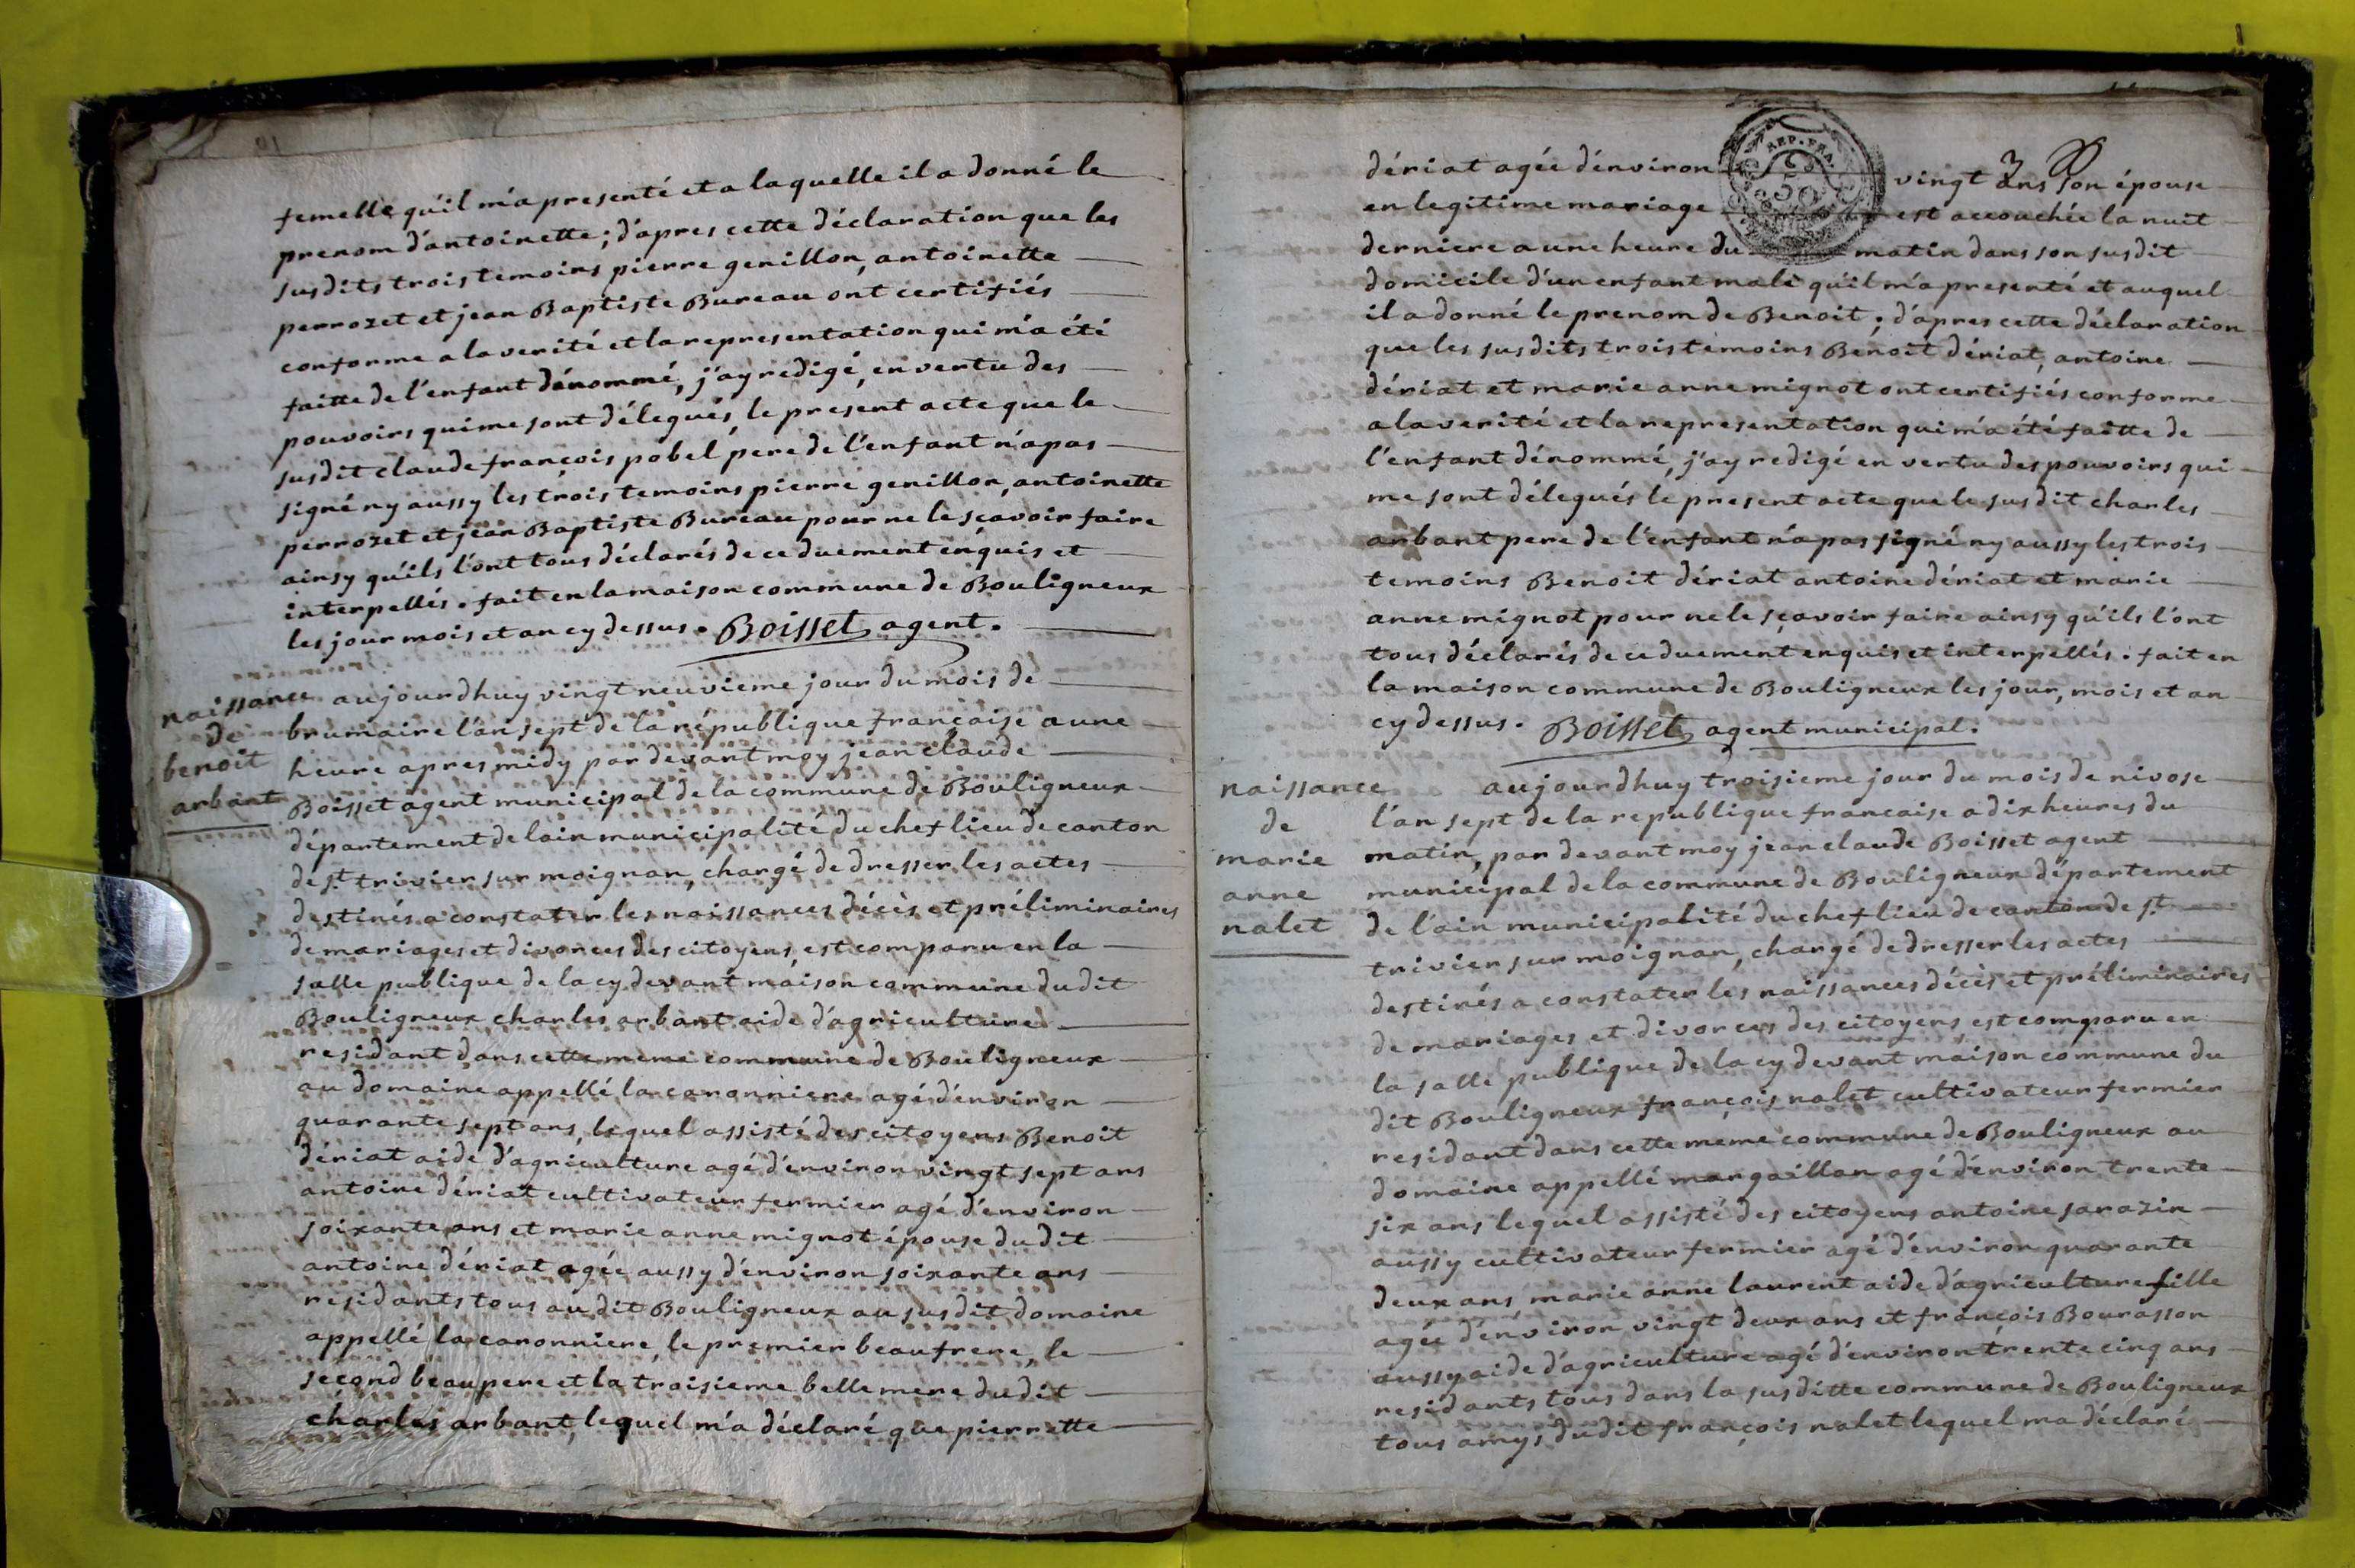 femelle qu'il m'a presenté et a laquelle il a donné le
prenom d'antoinette; d'apres cette déclaration que les
susdits trois temoins pierre genillon, antoinette
perrozet et jean Baptiste Bureau ont certifiés
conforme a la verité et la representation qui m'a été
faitte de l'enfant dénommé, j'ay redigé, en vertu des
pouvoirs qui me sont délegués, le present acte que le
susdit claude françois pobel pere de l'enfant n'a pas
signé ny aussy les trois temoins pierre genillon, antoinette
perrozet et jean Baptiste Bureau pour ne le sçavoir faire
ainsy qu'ils l'ont tous déclarés de ce duement enquis et
interpellés. fait en la maison commune de Bouligneux
les jour mois et an cy dessus. Boisset agent.
naissance
de
benoit
arbant
aujourdhuy vingt neuvieme jour du mois de
brumaire l'an sept de la république française a une
heure apres midy par devant moy jean claude
Boisset agent municipal de la commune de Bouligneux
département de lain municipalité du chef lieu de canton
de st trivier sur moignan, chargé de dresser les actes
destinés a constater les naissances décès et préliminaires
de mariages et divorces des citoyens, est comparu en la
salle publique de la cy devant maison commune du dit
Bouligneux charles arbant aide d'agriculture
residant dans cette meme commune de Bouligneux
au domaine appellé la caronniere agé d'environ
quarante sept ans, lequel assisté des citoyens Benoit
dériat aide d'agriculture agé d'environ vingt sept ans
antoine dériat cultivateur fermier agé d'environ
soixante ans et marie anne mignot épouse du dit
antoine dériat agée aussy d'environ soixante ans
residants tous au dit Bouligneux au susdit domaine
appellé la caronniere, le premier beaufrere, le
second beaupere et la troisieme belle mere du dit
charles arbant, lequel m'a déclaré que pierrette
dériat agée d'environ vingt ans son épouse
en legitime mariage est accouchée la nuit
derniere a une heure du matin dans son susdit
domicile d'un enfant male qu'il m'a presenté et auquel
il a donné le prenom de Benoit; d'apres cette déclaration
que les susdits trois temoins Benoit dériat, antoine
dériat et marie anne mignot ont certifiés conforme
a la verité et la representation qui m'a été faitte de
l'enfant dénommé, j'ay redigé en vertu des pouvoirs qui
me sont délegués le present acte que le susdit charles
arbant pere de l'enfant n'a pas signé ny aussy les trois
temoins Benoit dériat antoine dériat et marie
anne mignot pour ne le sçavoir faire ainsy qu'ils l'ont
tous déclarés de ce duement enquis et interpellés. fait en
la maison commune de Bouligneux les jour, mois et an
cy dessus. Boisset agent municipal.
naissance
de
marie
anne
nalet
aujourdhuy troisieme jour du mois de nivose
l'an sept de la republique francaise a dix heures du
matin, par devant moy jean claude Boisset agent
municipal de la commune de Bouligneux département
de l'ain municipalité du chef lieu de canton de st
trivier sur moignan, chargé de dresser les actes
destinés a constater les naissances décès et préliminaires
de mariages et divorces des citoyens est comparu en
la salle publique de la cy devant maison commune du
dit Bouligneux françois nalet cultivateur fermier
residant dans cette meme commune de Bouligneux au
domaine appellé margaillan agé d'environ trente
six ans lequel assisté des citoyens antoine sarazin
aussy cultivateur fermier agé d'environ quarante
deux ans, marie anne laurent aide d'agriculture fille
agée d'environ vingt deux ans et françois Bourasson
aussy aide d'agriculture agé d'environ trente cinq ans
residants tous dans la susditte commune de Bouligneux
tous amys du dit françois nalet lequel ma déclaré